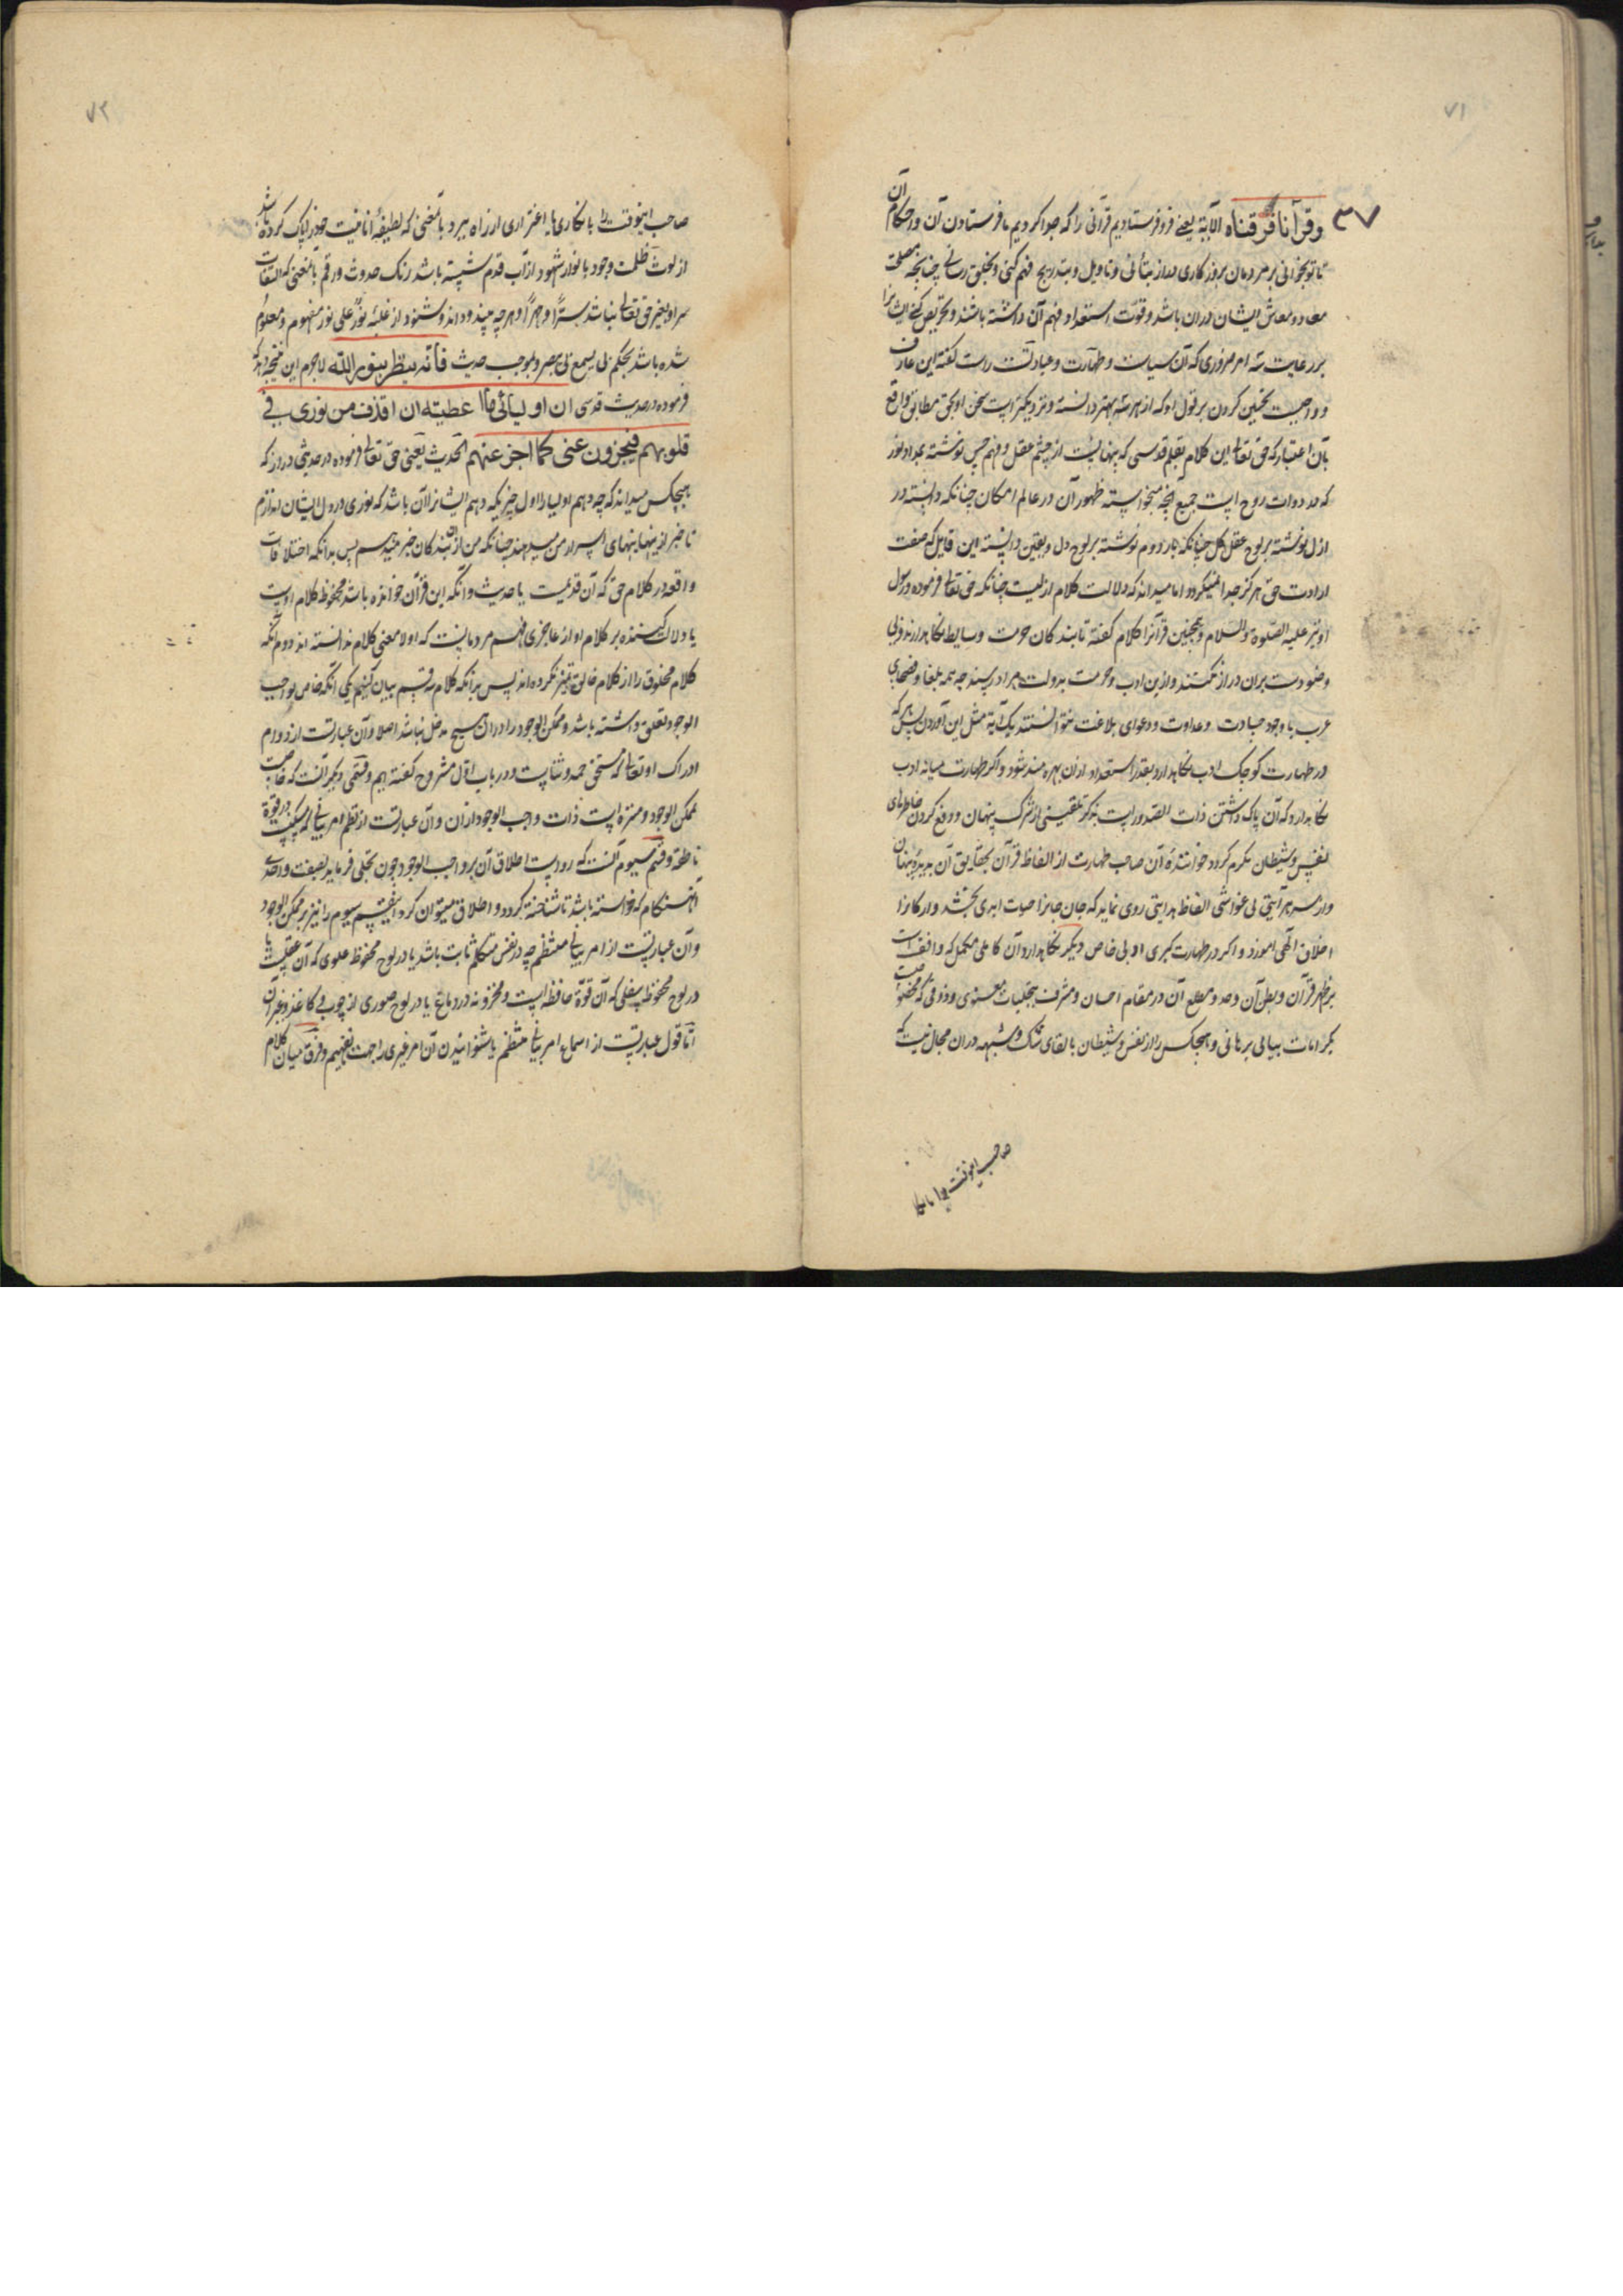 ۷۱
۳۷
وقرآنا فرقناه الآیة یعنی فرو فرستادیم قرآنی را که جدا کردیم ما فرستادن آن و احکام آن
تا تو بخوانی بر مردمان بروزکاری دراز بتأنی و تاویل و بتدریج فهم کنی و بخلق رسانی چنانچه مصلحت
معاد و معاش ایشان دران باشد و قوت استعداد فهم آن داشته باشند و تحریص کنی ایشانرا
بر رعایت سه امر ضروری که آن سیاست و طهارت و عبادتست راست کفته این عارف
و واجبست تحسین کردن بر قول او که از هرسه بهتر دانسته و نزدیکتر است سخن او بحق مطابق واقع
بآن اعتبار که حق تعالی این کلام بقلم قدسی که پنهانست از چشم عقل و فهم حس نوشته بمداد نور
که مداد دوات روح است جمیع آنچه میخواسته ظهور آن در عالم امکان چنانکه دانسته در
ازل نوشته بر لوح عقل کل چنانکه بار دوم نوشته بر لوح دل و یقین دانسته این قایل که صفت
ارادت حق هرکز جدا نمیکردد اما میداند که دلالت کلام ازلیست چنانکه حق تعالی فرموده و رسول
او نیز علیه الصلوة والسلام و همچنین قرآنرا کلام کفته تا بندکان حرمت وسایط نکاهدارند و بی
وضو دست بران دراز نکنند و ازین ادب و حرمت بدولت مراد رسند چه همه بلغا و فصحای
عرب با وجود عداوت و دعوای بلاغت نتوانستند یک آیة مثل این آوردن پس هرکه
در طهارت کوچک ادب نکاهدارد بقدر استعداد ازان بهره مند شود و اکر طهارت میانه ادب
نکاهدارد که آن پاک داشتن ذات الصدور است بذکر تلقینی از شرک پنهان و دفع کردن خاطرهای
نفس و شیطان مکرم کردد خوانندۀ آن صاحب طهارت از الفاظ قرآن بحقایق آن پنهان
و از سر هر آیتی بی غواشی الفاظ هدایتی روی نماید که جان حیات ابدی بخشد
اخلاق الهی آموزد و اکر در طهارت کبری ادبی خاص دیکر نکاهدارد آن کاملی مکمل که واقفست
بر ظهر قرآن و بطن آن و حد و مطلع آن در مقام احسان و مشرف بتجلیات معنوی و ذوقی که مخصوص
بکرامات بیانی برهانی و هیچکس را از نفس و شیطان بالقای شک و شبهه دران مجال نیست که
صاحب اینوقت را بانکار
۷۲
صاحب اینوقت را بانکاری یا اغتراری از راه ببرد بآنمعنی که لطیفۀ انانیت خود را پاک کرده باشد
از لوث ظلمت وجود بانوار شهود از آب قدم شسته باشد رنک حدوث و رقم بآنمعنی که التفات
سر او بغیر حق تعالی نباشد سرًّا و جهرًا و هرچه بیند و داند و شنود از غلبۀ نورٌ علی نور مفهوم و معلوم
شده باشد بحکم بی یسمع بی یبصر و بموجب حدیث فانّه ینظر بنور الله لاجرم این نتیجه دهد که
فرموده در حدیث قدسی ان اولیائی عطیته ان اقذف من نوری فی
قلوبهم فیخبرون عنی کما اخبر عنهم الحدیث یعنی حق تعالی فرموده در حدیثی دروز که
هیچکس میداند که چه دهم اولیا را اول چیزیکه دهم ایشانرا آن باشد که نوری در دل ایشان اندازم
تا خبر از پنهانیهای اسرار من میدهند چنانکه من از بندکان خبر پس بدانکه اختلافات
واقعه در کلام حق که آن قدیمست یا حدیث و آنکه این قرآن خوانده باشد محفوظ کلام اوست
یا دلالت کننده بر کلام او از عاجزی فهم مردمانست که اولا معنی کلام ندانسته اند دوم آنکه
کلام مخلوق را از کلام خالق تمیز نکرده اند پس بدانکه کلام سه قسم بیان کنیم یکی آنکه خاص بواجب
الوجود تعلق داشته باشد و ممکن الوجود را دران هیچ مدخل نباشد اصلا و آن عبارتست از دوام
ادراک او تعالی که مستحق حمد و ثناست و در باب اول مشروح کفته ایم و قسمی دیکر آنست که خاصۀ
ممکن الوجود و منزه است ذات واجب الوجود ازان و آن عبارتست از نظم امر بیانی که در قوة
ناطقه و قسم سیوم آنست که رواست اطلاق آن بر واجب الوجود چون تجلی فرماید بصفت واحدی
آن هنکام که خواسته باشد تا شناخته کردد و اطلاق میتوان کرد این قسم سیوم را نیز بر ممکن الوجود
و آن عبارتست از امر بیانی منتظم چه در نفس متکلم ثابت باشد یا در لوح محفوظ علوی که آن عقلیست یا
در لوح محفوظ سفلی که آن قوة حافظه است و مخزونه در دماغ یا در لوح صوری از چوب و کاغذ و غیر آن
امّا قول عبارتست از اسماع امر بیانی منتظم یا شنوانیدن آن امر غیری را جهت تفهیم و فرق میان کلام